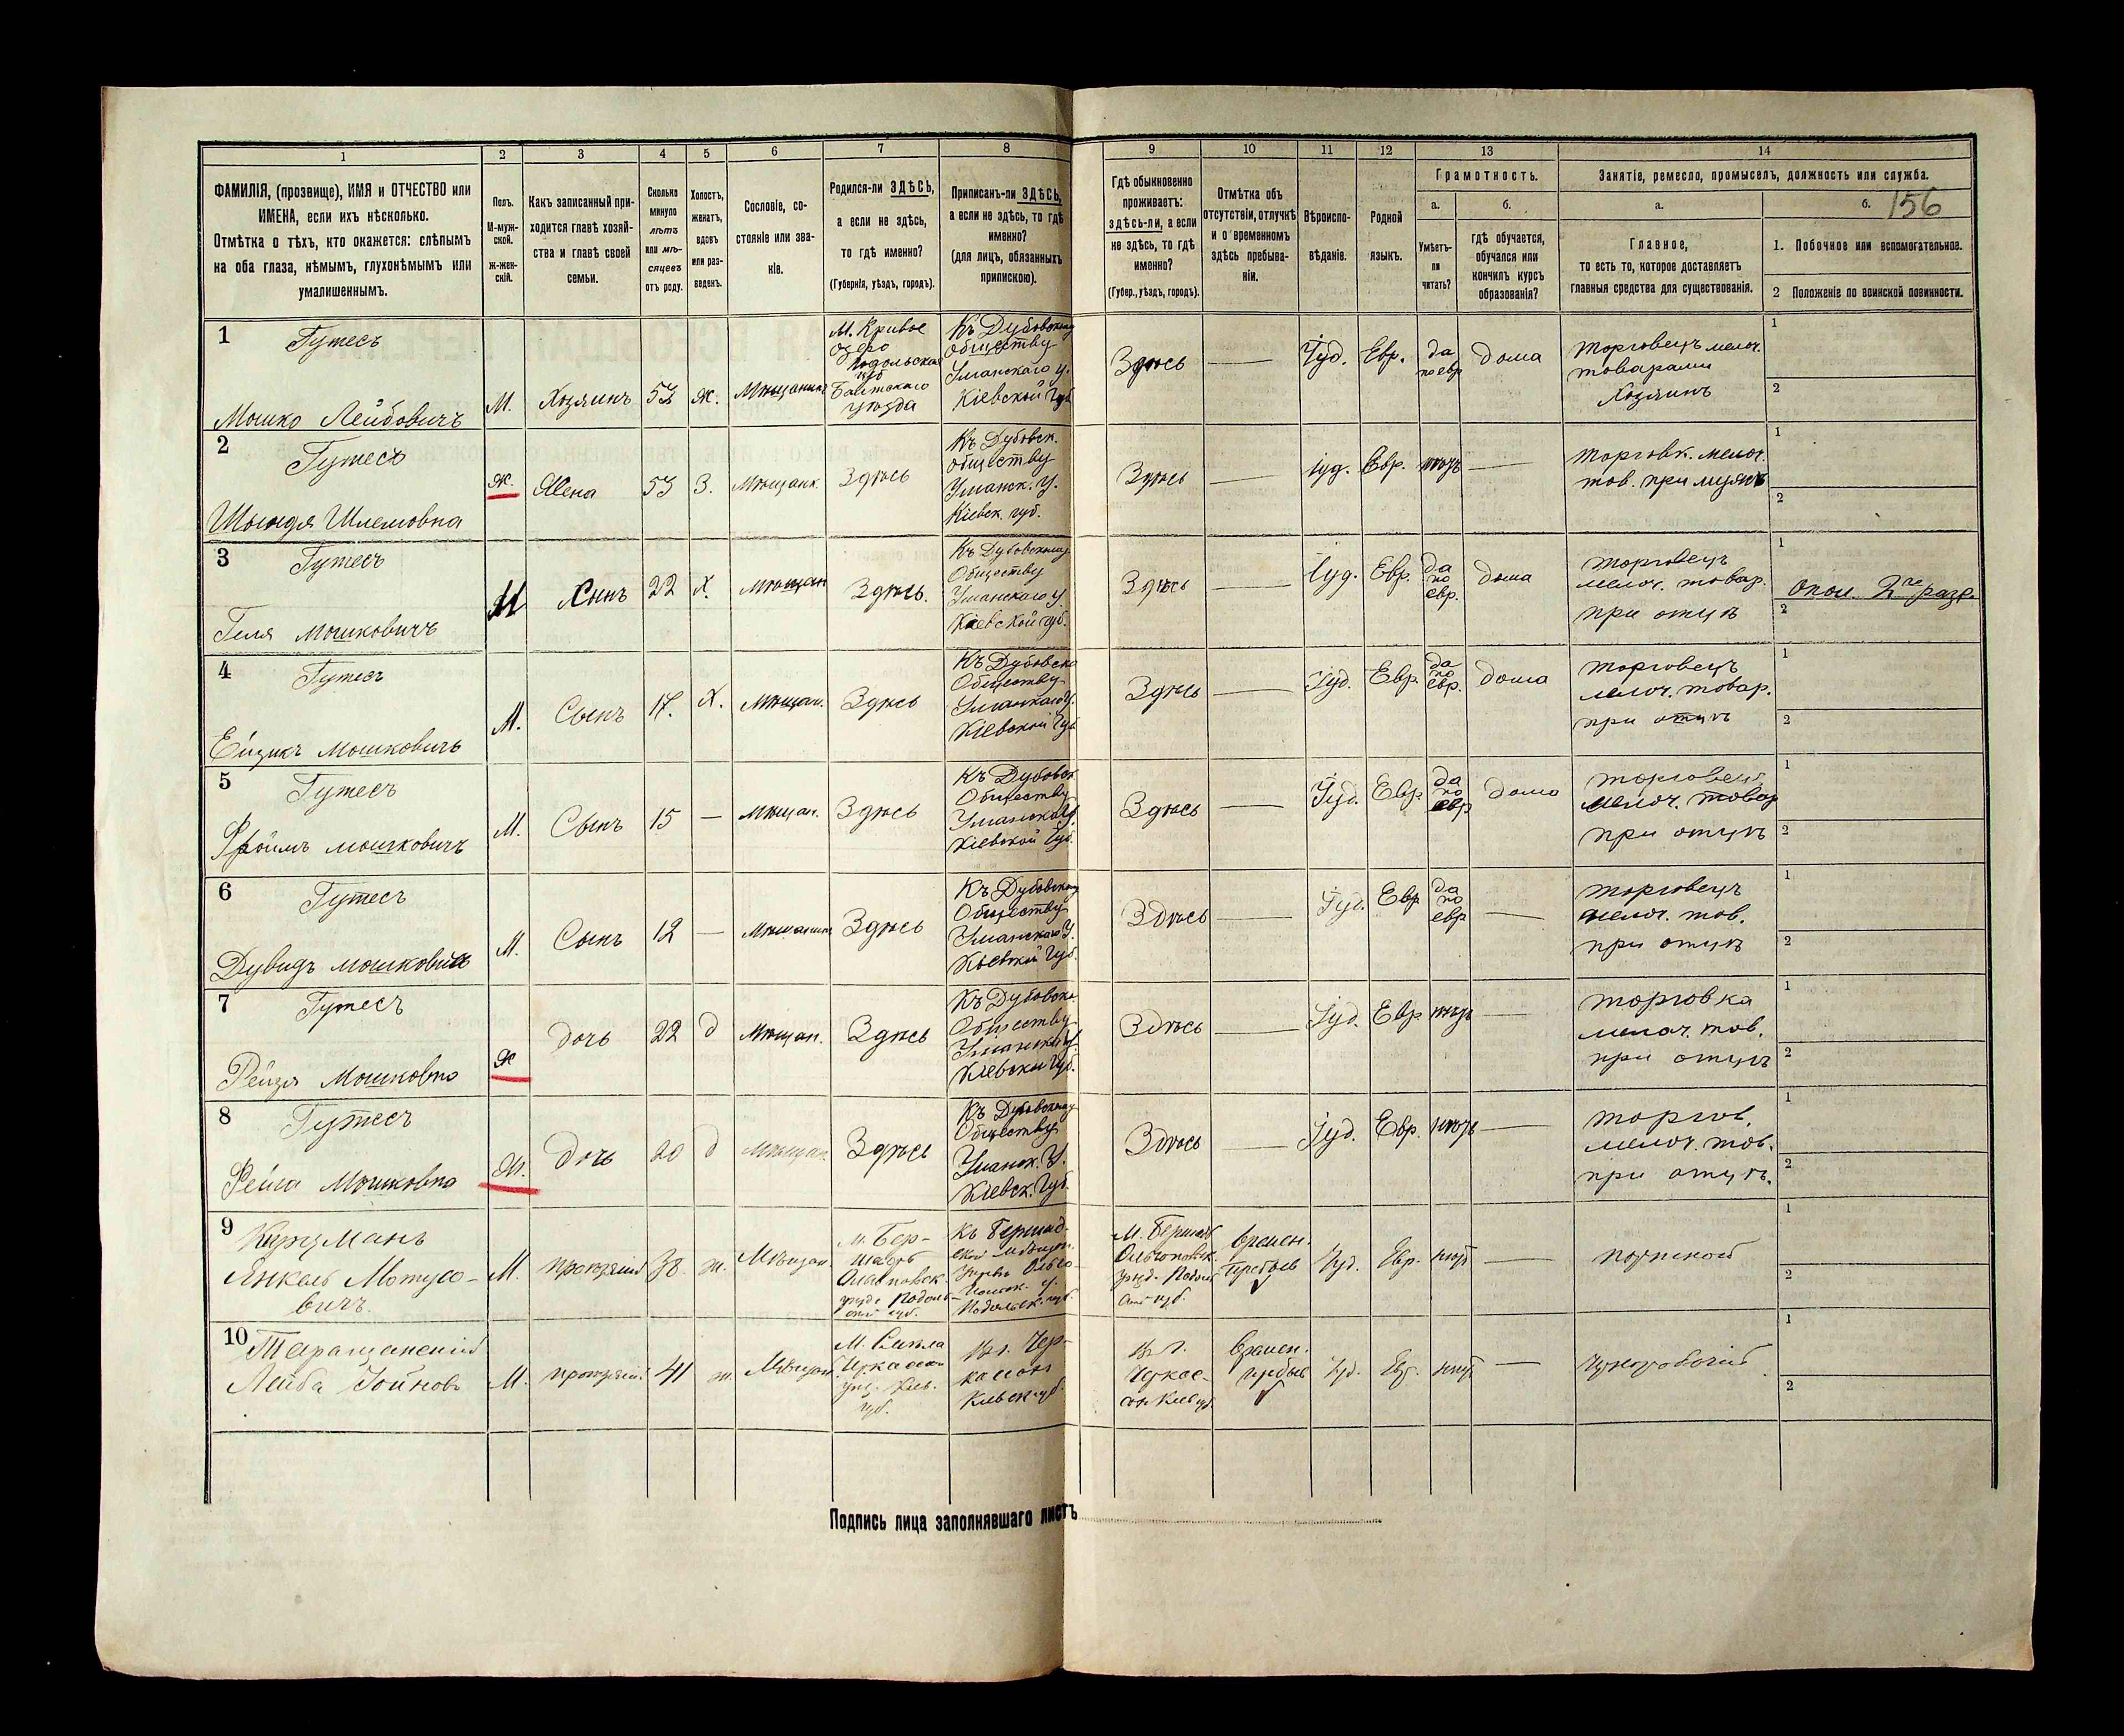 1
2
3
4
5
6
7
8
9
10
11
12
13
14
ФАМИЛІЯ, (прозвище), ИМЯ и ОТЧЕСТВО или
ИМЕНА, если ихъ нѣсколько.
Отмѣтка о тѣхъ, кто окажется: слѣпымъ
на оба глаза, нѣмымъ, глухонѣмымъ или
умалишеннымъ.
Полъ.
М-муж-
ской.
Ж-жен-
скій.
Какъ записанный при-
ходится главѣ хозяй-
ства и главѣ своей
семьи.
Сколько
минуло
лѣтъ
или мѣ-
сяцевъ
отъ роду.
Холостъ,
женатъ,
вдовъ
или раз-
веденъ.
Сословіе, со-
стояніе или зва-
ніе.
Родился-ли ЗДѢСЬ,
а если не здѣсь,
то гдѣ именно?
(Губернія, уѣздъ, городъ).
Приписанъ-ли ЗДѢСЬ,
а если не здѣсь, то гдѣ
именно?
(для лицъ, обязанныхъ
припискою).
Гдѣ обыкновенно
проживаетъ:
здѣсь-ли, а если
не здѣсь, то гдѣ
именно?
(Губер., уѣздъ, городъ).
Отмѣтка объ
отсутствіи, отлучкѣ
и о временномъ
здѣсь пребыва-
ніи.
Вѣроиспо-
вѣданіе.
Родной
языкъ.
Грамотность.
а.
Умѣетъ-
ли
читать?
б.
гдѣ обучается,
обучался или
кончилъ курсъ
образованія?
Занятіе, ремесло, промыселъ, должность или служба.
а.
Главное,
то есть то, которое доставляетъ
главныя средства для существованія.
б.
156
1. Побочное или вспомогательное.
2 Положеніе по воинской повинности.
1
Гутесъ
Мошко Лейбовичъ
М.
Хозяинъ
53
ж.
Мѣщанинъ
М. Кривое
Озеро
Подольская
губ
Балтскаго
уѣзда
Къ Дубовскому
Обществу
Уманскаго у.
Кіевской Губ
Здѣсь
—
Іуд.
Евр.
да
по евр
дома
торговецъ мелоч.
товарами
Хозяинъ
1
2
2
Гутесъ
Шлемовна
ж.
Жена
53
З.
Мѣщанк.
Здѣсь
Къ Дубовск.
обществу
Уманск. У.
Кіевск. губ.
Здѣсь
—
Іуд.
Евр.
нѣтъ
—
торговк. мелоч.
тов. при мужѣ
1
2
3
Гутесъ
Гиля Мошковичъ
М
Сынъ
22
Х.
мѣщан
Здѣсь.
Къ Дубовскому
Обществу
Уманскаго У.
Кіевской губ.
Здѣсь
—
Іуд.
Евр.
да
по
евр.
дома
торговецъ
мелоч. товар.
при отцѣ
1
опол. 2го разр.
2
4
Гутесъ
Ейзикъ Мошковичъ
М.
Сынъ
17.
Х.
Мѣщан.
Здѣсь
Къ Дубовско
Обществу
Уманскаго У.
Кіевской Губ
Здѣсь
—
Іуд.
Евр.
да
по
евр.
дома
торговецъ
мелоч. товар.
при отцѣ
1
2
5
Гутесъ
Фроимъ Мошковичъ
М.
Сынъ
15
—
Мѣщан.
Здѣсь
Къ Дубовск.
Обществу
Уманска У.
Кіевской Губ.
Здѣсь
—
Іуд.
Евр
да
по
евр
дома
торговецъ
мелоч. товар
при отцѣ
1
2
6
Гутесъ
Дувидъ Мошковичъ
М.
Сынъ
12
—
Мѣщанинъ
Здѣсь
Къ Дубовскому
Обществу
Уманскаго У.
Кіевской Губ.
Здѣсь
—
Іуд.
Евр
да
по
евр
—
торговецъ
мелоч. тов.
при отцѣ
1
2
7
Гутесъ
Рейзя Мошковна
ж
дочь
22
д
Мѣщан.
Здѣсь
Къ Дубовско
Обществу
Уманска У.
Кіевской Губ.
Здѣсь
—
Іуд.
Евр
нѣтъ
—
торговка
мелоч. тов.
при отцѣ
1
2
8
Гутесъ
Фейга Мошковна
ж.
дочь
20
д
Мѣщан.
Здѣсь
Къ Дубовскому
Обществу
Уманск. У.
Кіевск. Губ.
Здѣсь
—
Іуд.
Евр.
нѣтъ
—
торгов.
мелоч. тов.
при отцѣ.
1
2
9
Янкель Мотусо-
вичъ.
М.
проѣзжій
38
ж.
Мѣщан.
М. Бер-
шадь
Ольгопольск.
уѣзд. Подоль-
ской губ.
Къ Бершад-
Подольск. губ
М. Бершадь
Ольгопольск.
уѣзд. Подоль
ской губ.
времен.
пребыв
Іуд.
Евр.
нѣтъ
—
портной
1
2
10
Таращанскій
Лейба Гойновъ
М.
проѣзжій
41
ж.
Мѣщан.
М. Смѣла
губ.
Къ г. Чер-
кассы
Кіевск губ.
времен.
пребыв
Іуд.
Евр.
нѣтъ
—
чернорабочій
1
2
Подпись лица заполнявшаго листъ